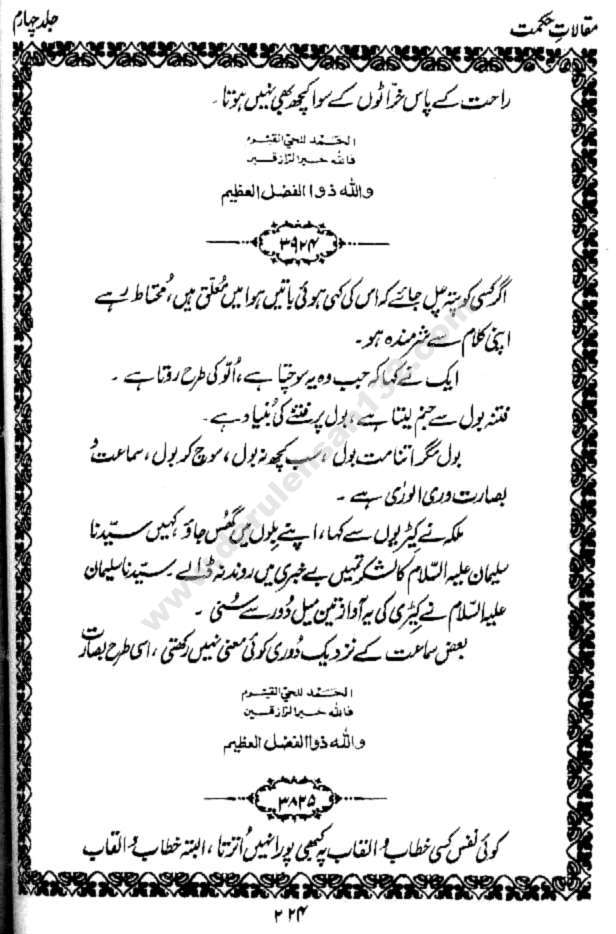 مقالاتِ حکمت
جلد چہارم
راحت کے پاس خرّاٹوں کے سوا کچھ بھی نہیں ہوتا۔
الحَمْد للحیّ القیّوم
فالله خیر الرّازقین
والله ذوا الفضل العظیم
۳۹۲۴
اگر کسی کو پتہ چل جائے کہ اس کی کہی ہوئی باتیں ہوا میں مُعلّق ہیں، مُحتاط رہے
اپنی کلام سے شرمندہ ہو۔
ایک نے کہا کہ جب وہ یہ سوچتا ہے، اُلّو کی طرح روتا ہے۔
فتنہ بول سے جنم لیتا ہے، بول ہر فتنے کی بُنیاد ہے۔
بول مگر اتنا مت بول، سب کچھ نہ بول، سوچ کر بول، سماعت و
بصارت وری الورٰی ہے۔
ملکہ نے کیڑیوں سے کہا، اپنے بِلوں میں گھُس جاؤ کہیں سیّدنا
سلیمان علیہ السّلام کا لشکر تمہیں بے خبری میں روند نہ ڈالے۔ سیّدنا سلیمان
علیہ السّلام نے کیڑی کی یہ آواز تین میل دُور سے سُنی۔
بعض سماعت کے نزدیک دُوری کوئی معنی نہیں رکھتی، اسی طرح بصارت
الحَمْد للحیّ القیّوم
فالله خیر الرّازقین
والله ذوا الفضل العظیم
۳۸۲۵
کوئی نفس کسی خطاب و القاب پہ کبھی پورا نہیں اُترتا، البتہ خطاب و القاب
۲۲۴